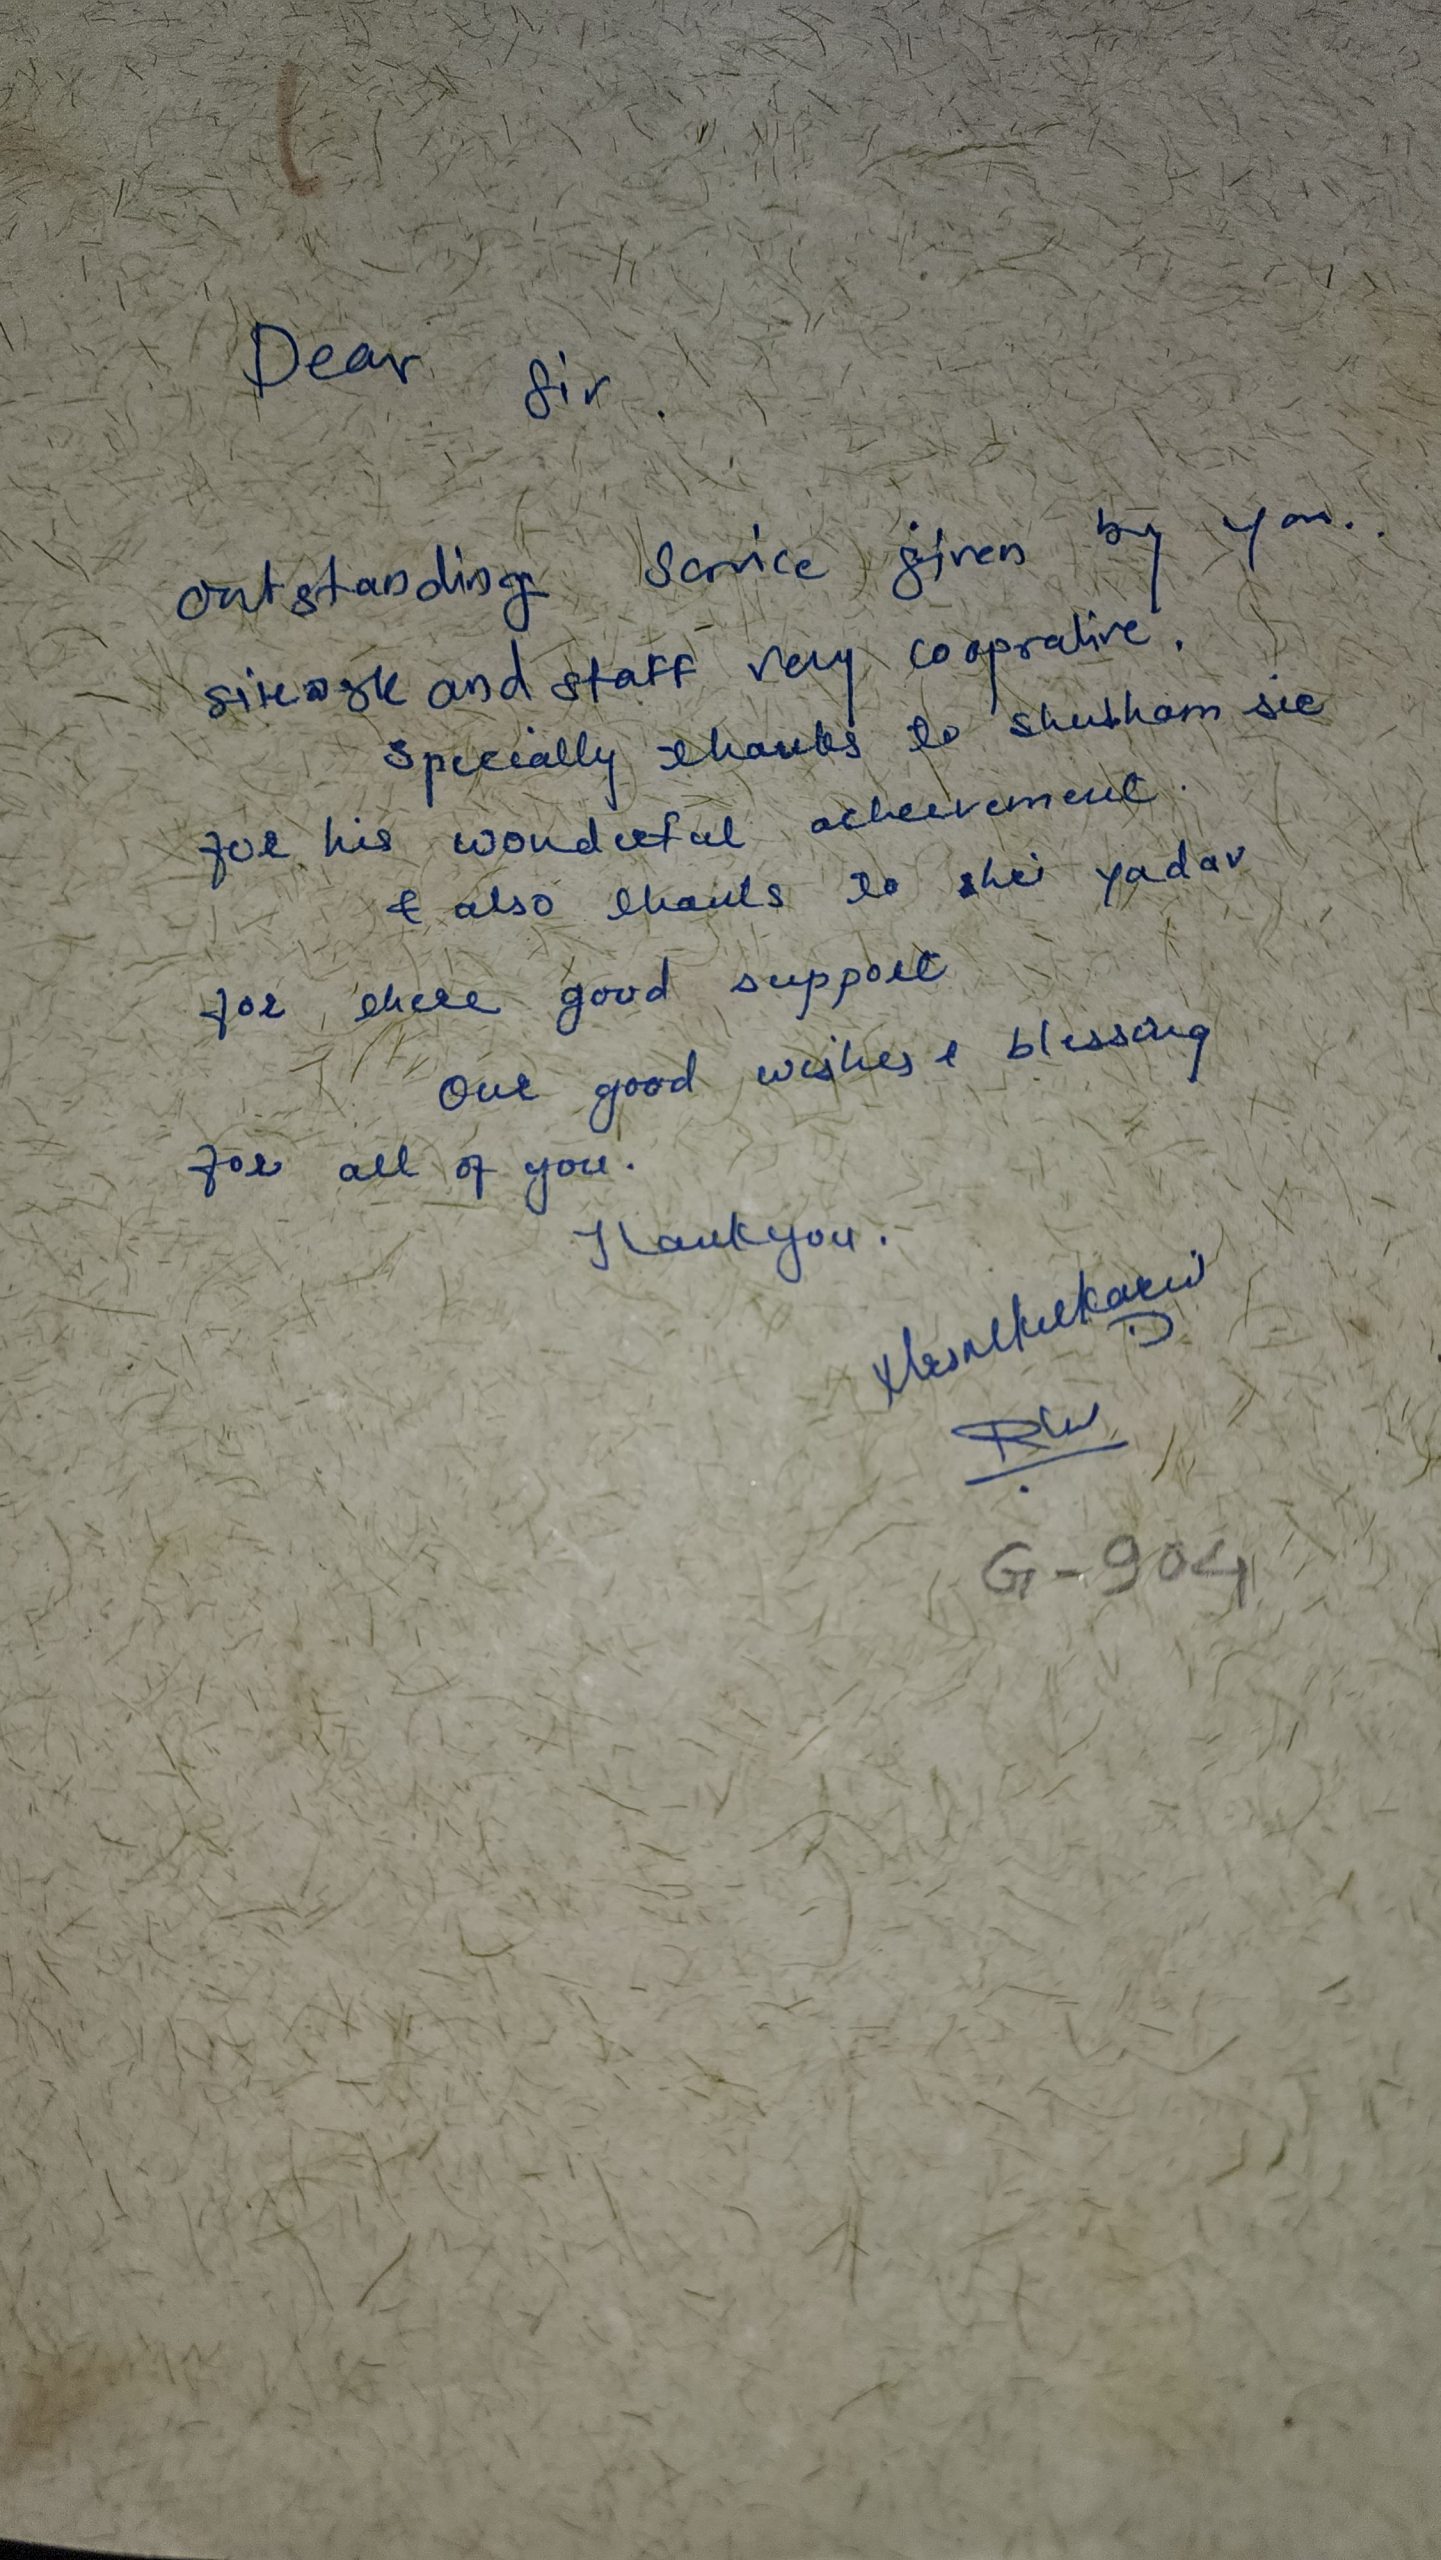 Dear Sir.
Outstanding Service given by you..
sitework and staff very cooprative.
Specially thanks to shubham sir
for his wonderful acheivement.
& also thanks to shri yadav
for there good support
Our good wishes & blessing
for all of you.
Thankyou.
G-904